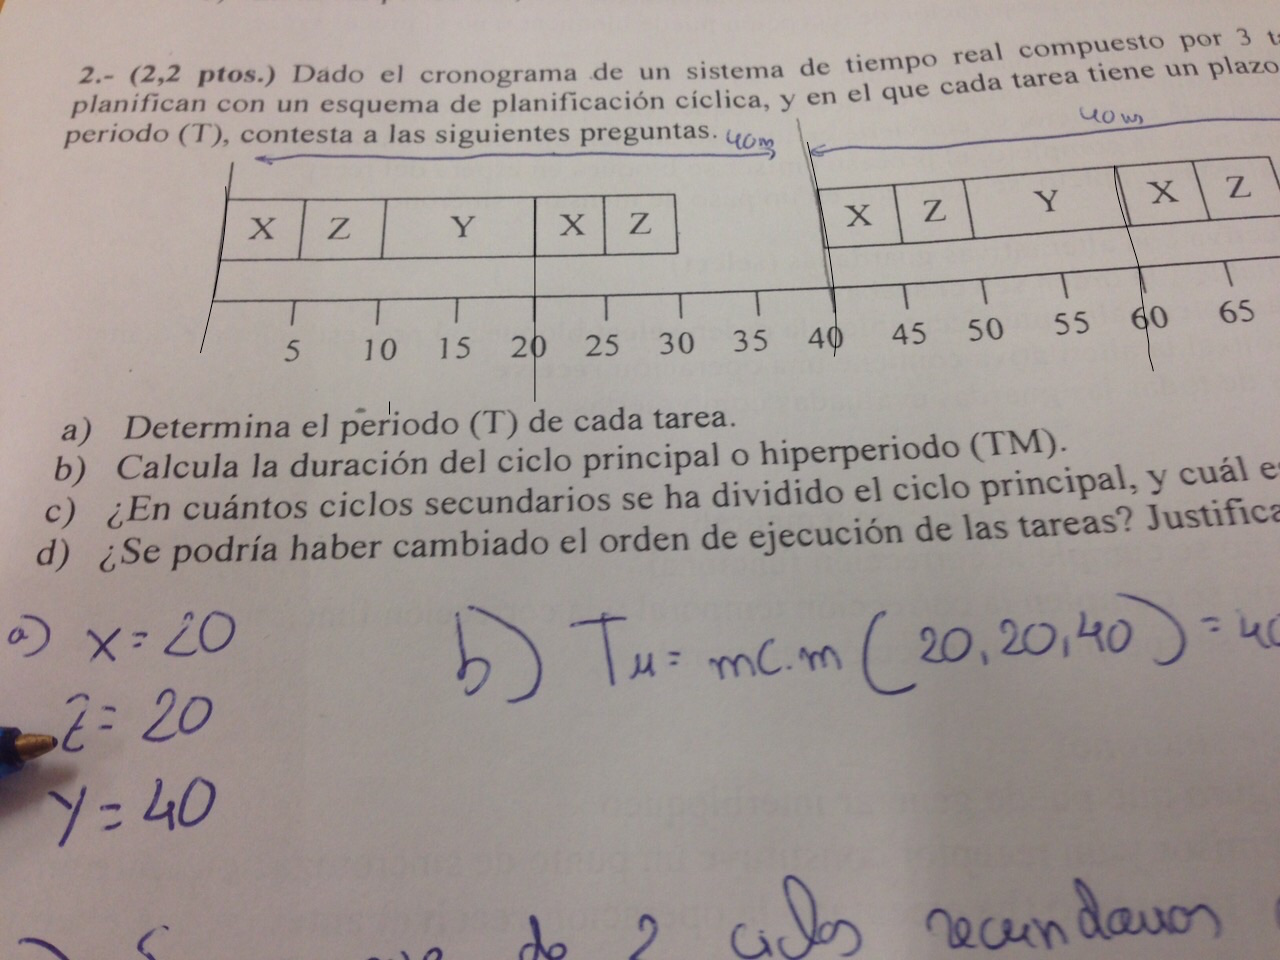 2.- (2,2 ptos.) Dado el cronograma de un sistema de tiempo real compuesto por 3
planifican con un esquema de planificación cíclica, y en el que cada tarea tiene un plazo
periodo (T), contesta a las siguientes preguntas.
40m 40m
X Z Y X Z X Z Y X Z
5 10 15 20 25 30 35 40 45 50 55 60 65
a) Determina el periodo (T) de cada tarea.
b) Calcula la duración del ciclo principal o hiperperiodo (TM).
c) ¿En cuántos ciclos secundarios se ha dividido el ciclo principal, y cuál
d) ¿Se podría haber cambiado el orden de ejecución de las tareas? Justifica
a) X = 20
Z = 20
Y = 40
b) TM = mc.m (20, 20, 40) = 40
de 2 ciclos secundarios